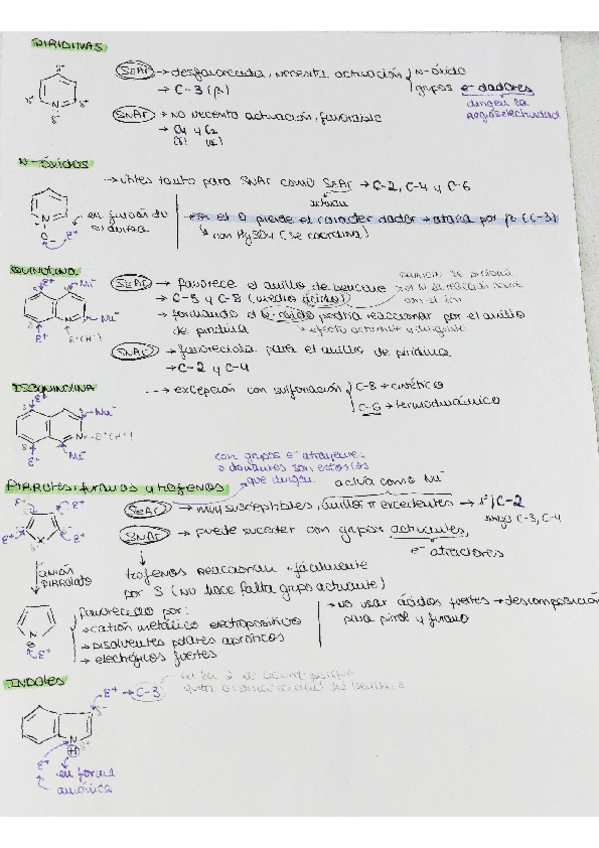 PIRIDINAS
SEAr → desfavorecida, necesita activación N-óxido
→ C-3 (β) grupos e⁻ dadores
dirigen la
regioselectividad
SNAr → no necesita activación, favorable
→ C4 y C2
N-óxidos
→ útiles tanto para SNAr como SEAr → C-2, C-4 y C-6
en función de
→ si el O pierde el carácter dador → ataca por β (C-3)
con HgSO4 (se coordina)
QUINOLINA
SEAr → favorece el anillo de benceno
→ C-5 y C-8 (medio ácido)
→ formando el N-óxido podría reaccionar por el anillo
de piridina → efecto activante y dirigente
E⁺ Nu⁻ Nu⁻ E⁺ E⁺(H⁺)
SNAr → favorecida para el anillo de piridina
→ C-2 y C-4
ISOQUINOLINA
→ excepción con sulfonación C-8 → cinético
C-6 → termodinámico
E⁺ Nu⁻ N-E⁺(H⁺) E⁺ Nu⁻
con grupos e⁻ atrayentes
o donantes son estos los
que dirigen
PIRROLES, furanos y tiofenos
activa como Nu⁻
SEAr → muy susceptibles, anillos π excedentes → 1º C-2
luego C-3, C-4
SNAr → puede suceder con grupos activantes,
e⁻ atractores
tiofenos reaccionan + fácilmente
por S (no hace falta grupo activante)
anión
PIRROLATO
favorecido por:
→ catión metálico electropositivo
→ disolventes polares apróticos
→ electrófilos fuertes
→ no usar ácidos fuertes → descomposición
para pirrol y furano
INDOLES
E⁺ → C-3
N
H
E⁺
en forma
aniónica